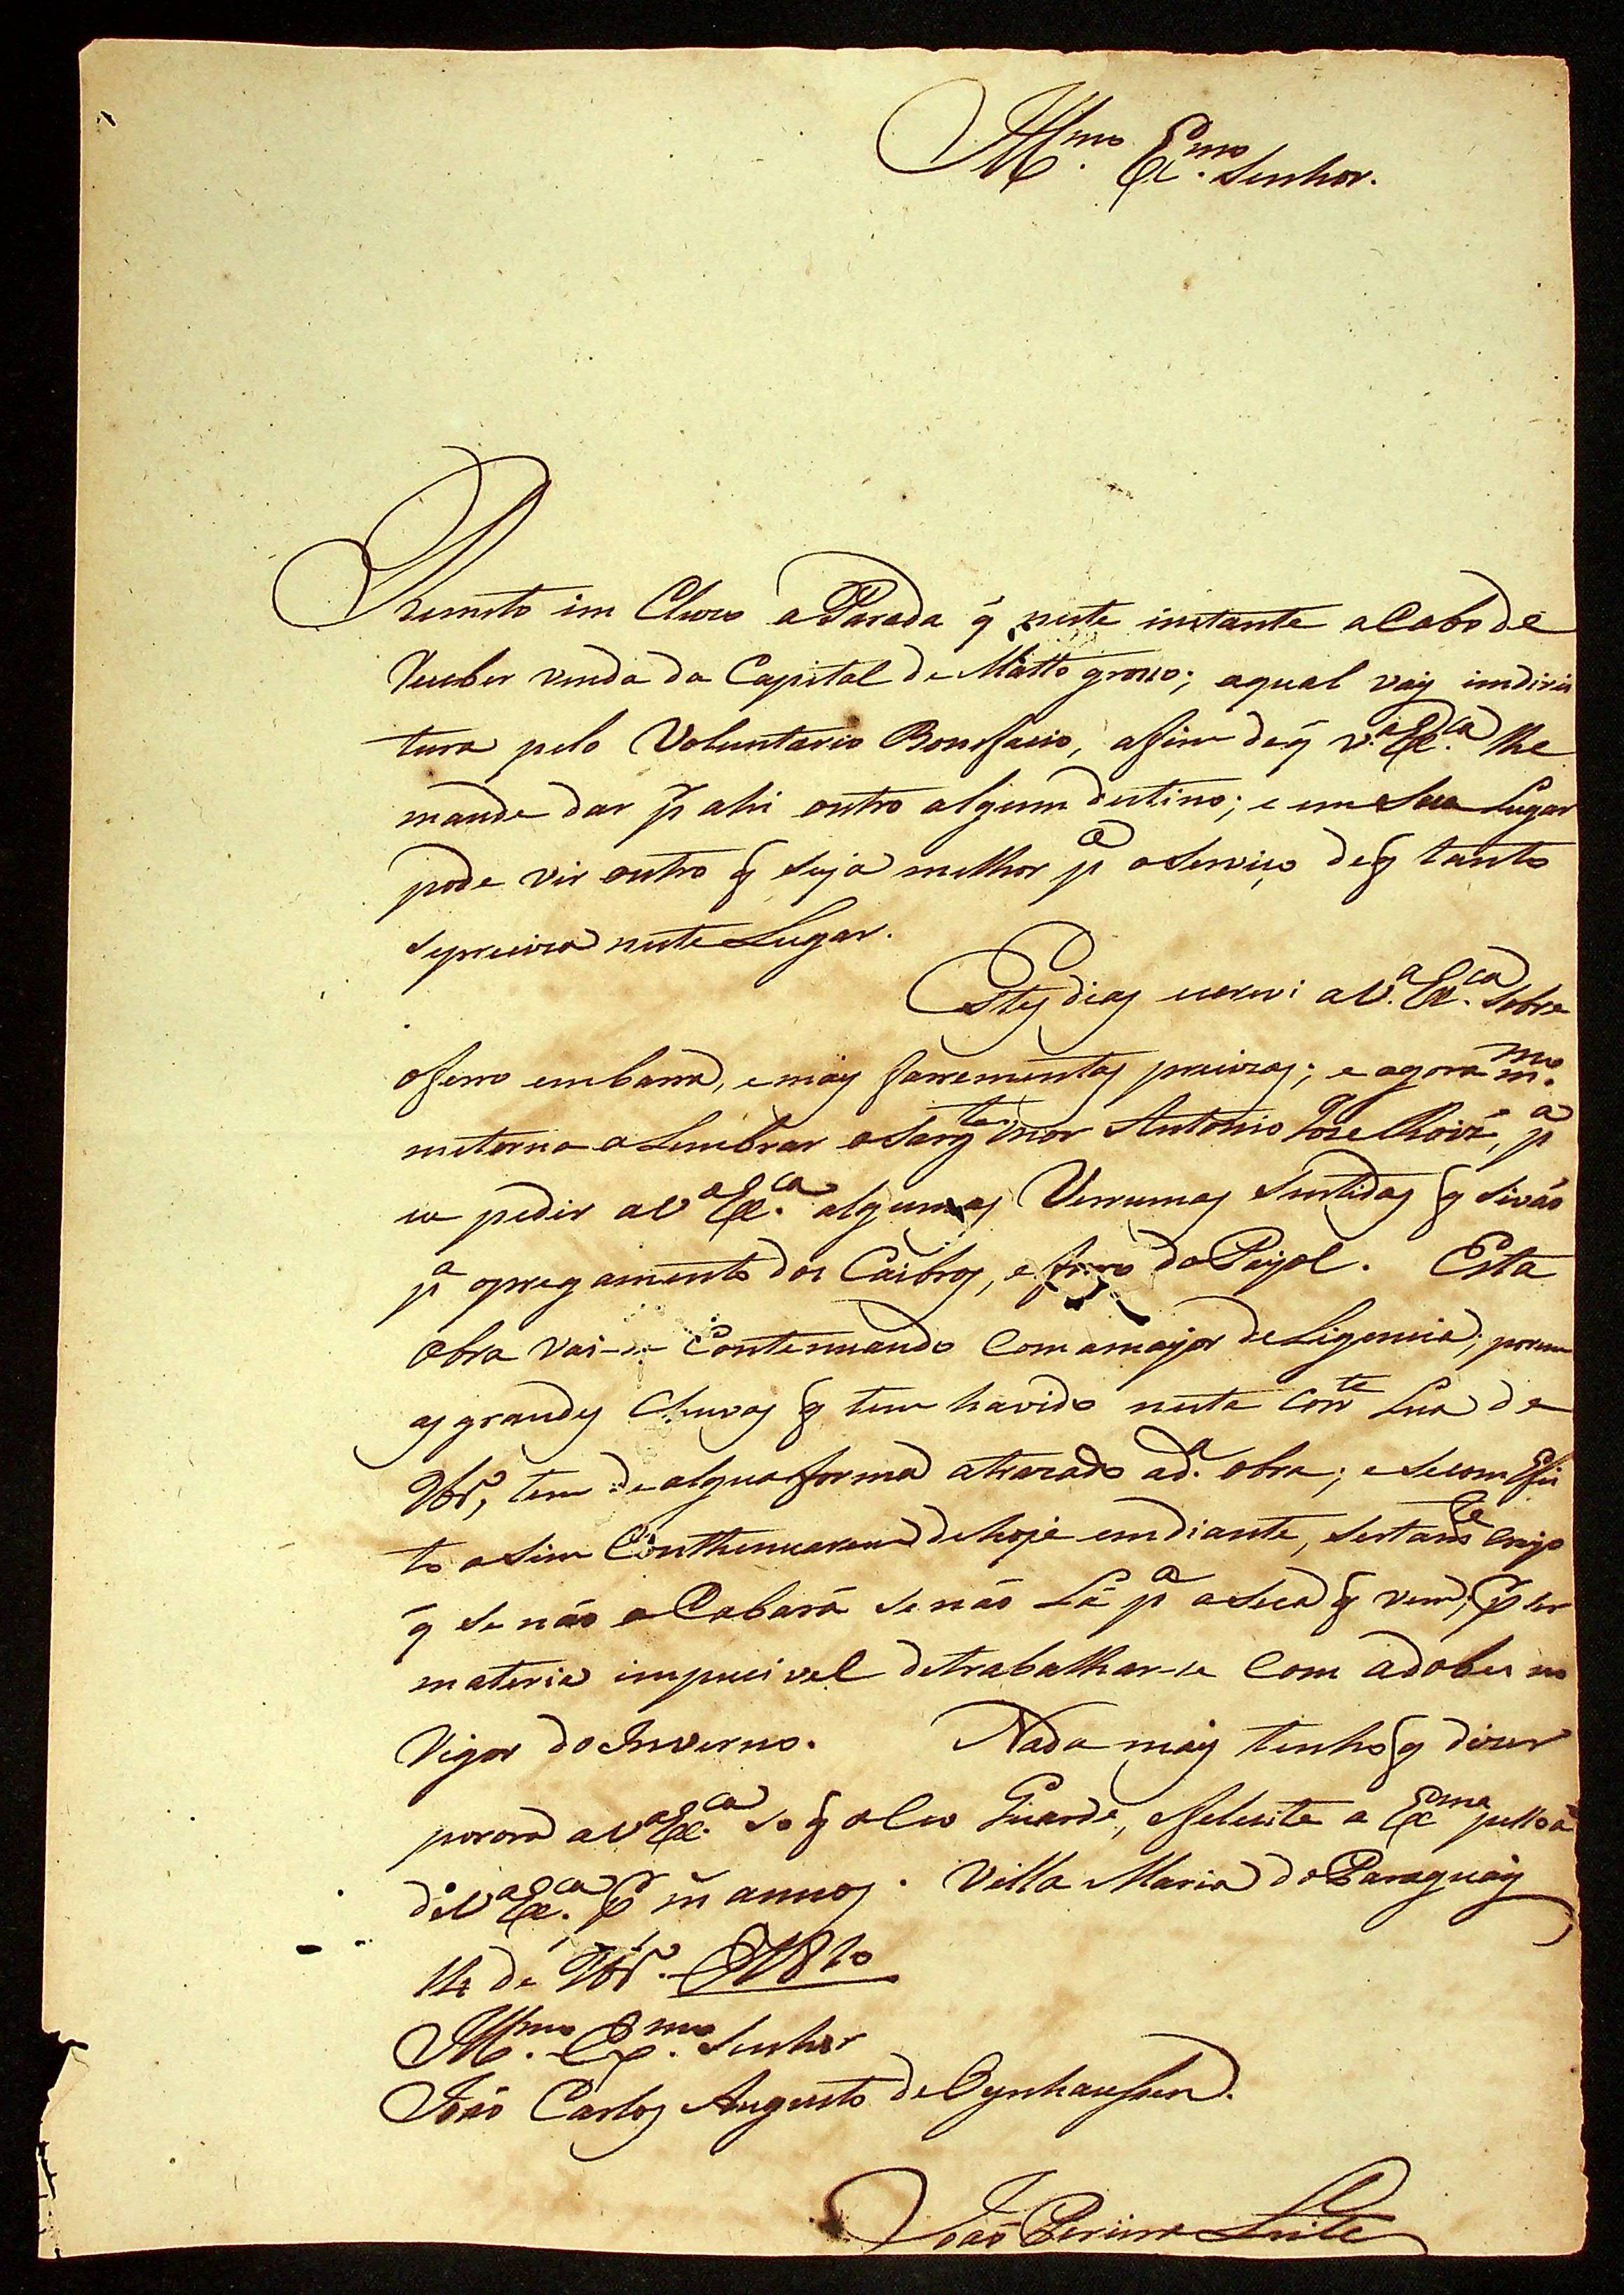 Illmo. Exmo. Senhor.
Remeto im Cluzo a Parada q̃ neste instante acabo de
Receber vinda da Capital de Matto groço; aqual vay imdirei
tura pelo Voluntario Bonefacio, afim deq̃ V.a Ex.ca lhe
mande dar pr ahi outro algum destino; e em seu Lugar
pode vir outro q̃ seja melhor pa o serviço deq̃ tanto
sepreciza neste Lugar.
Estes dias escrevi a V.a Ex.ca sobre
oferro embarra, e mais farrementas precizas; e agora mmo.
metorna a Lembrar o Sargto. mor Antonio Joze Roiz, pa
eu pedir a Va Ex.ca algumas Verrumas Surtidas q̃ sivão
pa opregamento dos Caibros, e forro do Payol. Esta
Obra vai-se Contenuando Com amayor deLigencia; porem
as grandes Chuvas q̃ tem havido nesta corrte Lua de
9br.o, tem de algua forma atrazado a d.a obra; e secom Efei
to asim Conthenuarem dehoje emdiante, sertamte creyo
q̃ se não aCabará se não Lá pa a seca q̃ vem; pr ser
materia impucivel detrabalhar-se Com adobes no
Vigor do Inverno. Nada mais tenho q̃ dizer
porora a Va Ex.ca so q̃ o Ceo Guarde, efelecite a Exma pessoa
de Va Ex.ca pr m. annos. Villa Maria do Paraguay
14 de 9br.o de 1810
Illmo. Exmo. Senhor
João Carlos Augusto de Oynhaussen.
João Pereira Leite